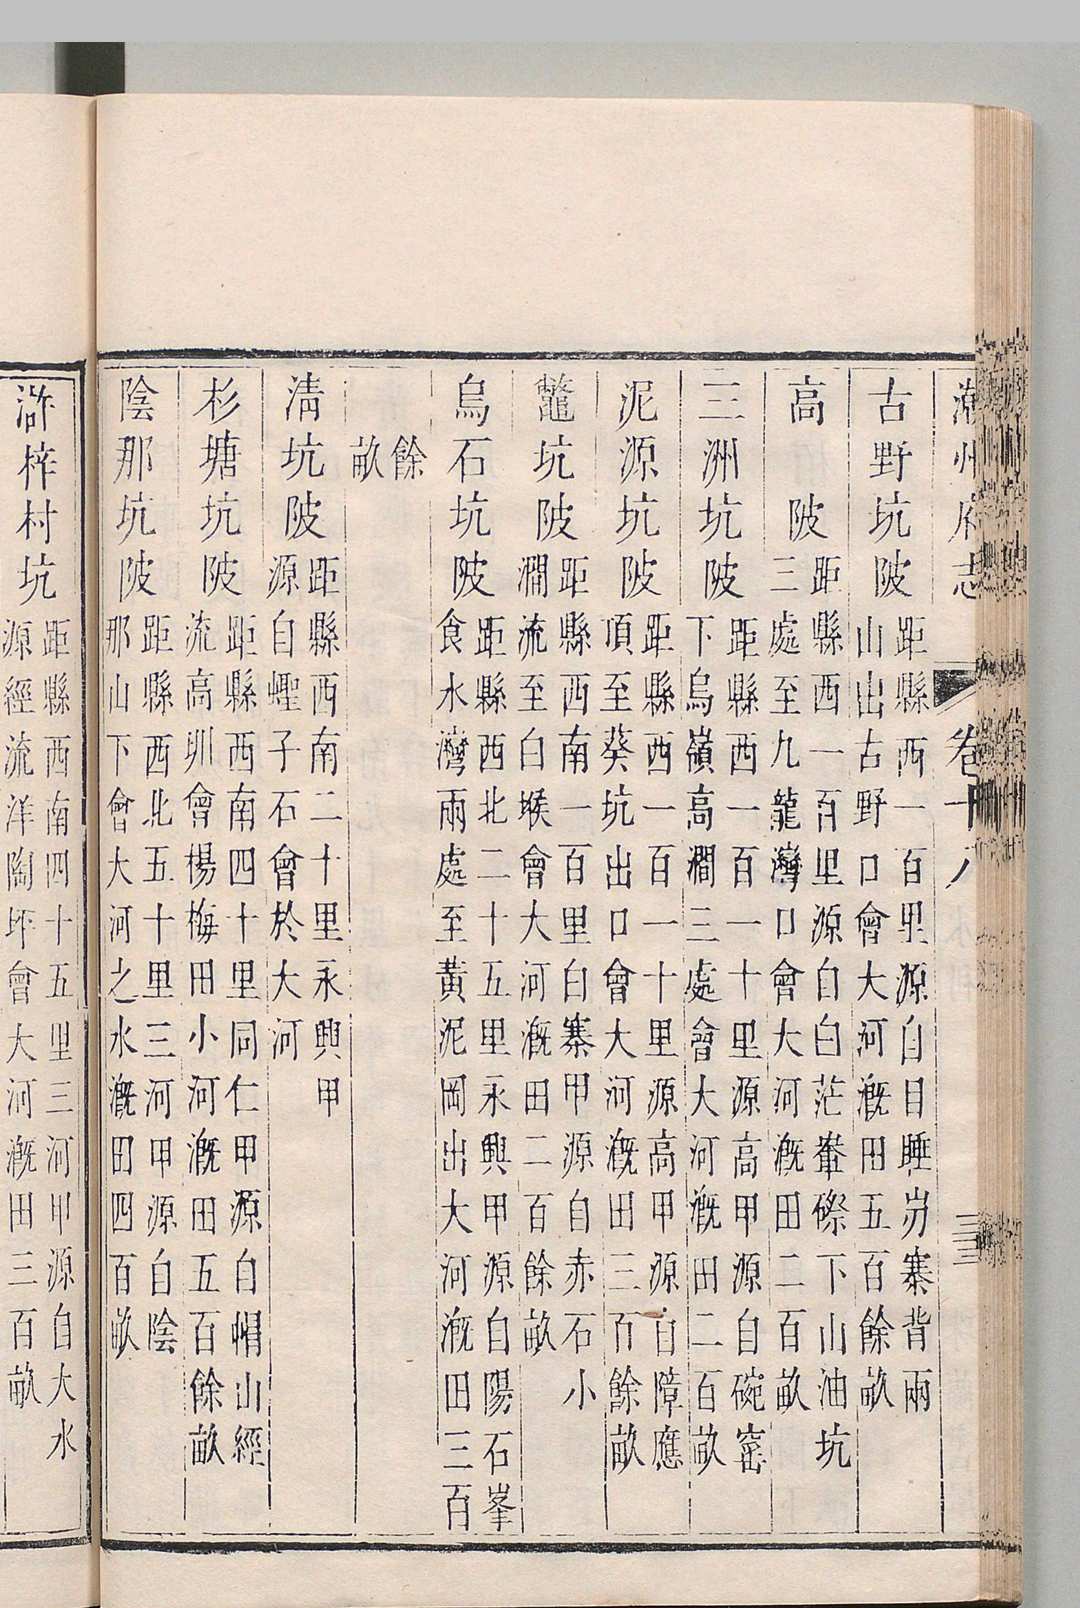 潮州府志　卷十八　三三
古野坑陂　距縣西一百里源自目睡岃寨背兩
山出古野口會大河漑田五百餘畝
高　陂　距縣西一百里源自白茫輋磜下山油坑
三處至九龍灣口會大河漑田二百畝
三洲坑陂　距縣西一百一十里源高甲源自碗窰
下烏嶺高澗三處會大河漑田二百畝
泥源坑陂　距縣西一百一十里源高甲源自障應
項至葵坑出口會大河漑田三百餘畝
鼇坑陂　距縣西南一百里白寨甲源自赤石小
澗流至白堠會大河漑田二百餘畝
烏石坑陂　距縣西北二十五里永興甲源自陽石峯
食水灣兩處至黃泥岡出大河漑田三百
餘
畝
清坑陂　距縣西南二十里永興甲
源自蟶子石會於大河
杉塘坑陂　距縣西南四十里同仁甲源自帽山經
流高圳會楊梅田小河漑田五百餘畝
陰那坑陂　距縣西北五十里三河甲源自陰
那山下會大河之水漑田四百畝
滸梓村坑　距縣西南四十五里三河甲源自大水
源經流洋陶坪會大河漑田三百畝